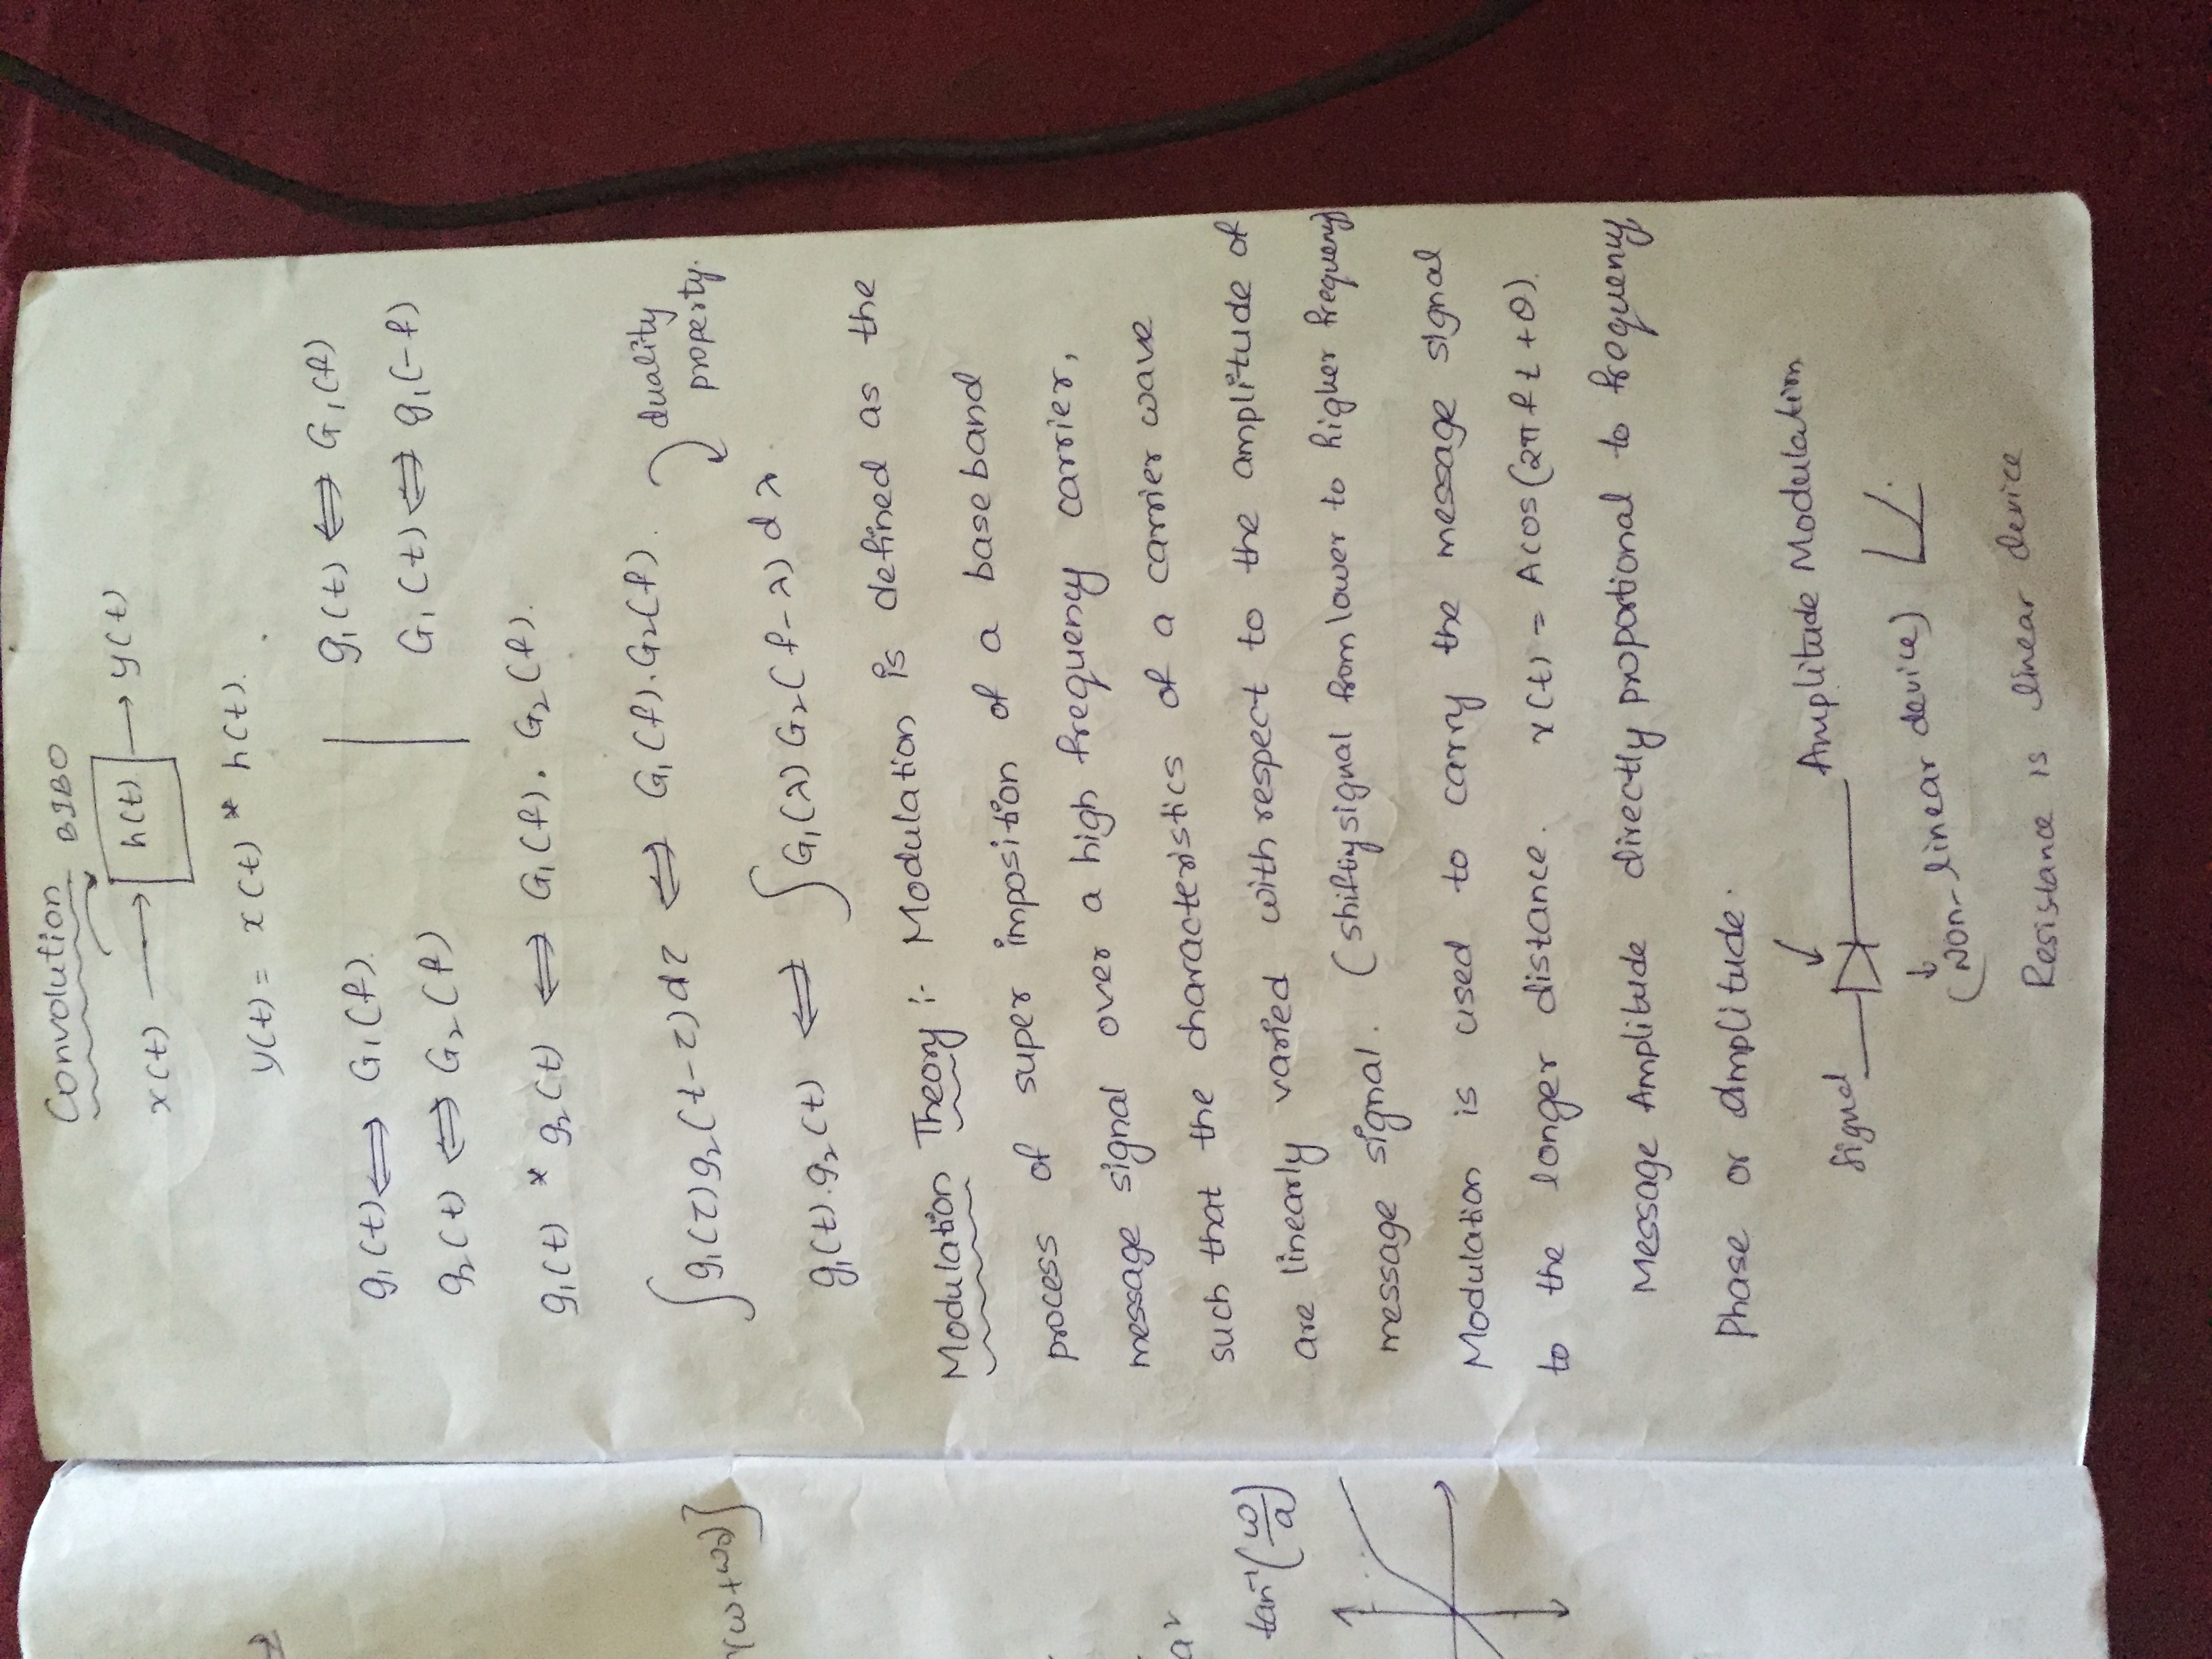 Convolution
BIBO
x(t) → h(t) → y(t)
y(t) = x(t) * h(t).
g₁(t) ⟺ G₁(f).
g₂(t) ⟺ G₂(f)
g₁(t) ⟺ G₁(f)
G₁(t) ⟺ g₁(-f)
g₁(t) * g₂(t) ⟺ G₁(f). G₂(f).
∫g₁(τ)g₂(t-τ)dτ ⟺ G₁(f).G₂(f).
duality
property.
g₁(t).g₂(t) ⟺ ∫G₁(λ) G₂(f-λ) dλ.
Modulation Theory :- Modulation is defined as the
process of super imposition of a baseband
message signal over a high frequency carrier,
such that the characteristics of a carrier wave
are linearly varied with respect to the amplitude of
message signal. (shifting signal from lower to higher frequency)
Modulation is used to carry the message signal
to the longer distance. x(t) = Acos(2πft+θ).
Message Amplitude directly proportional to frequency,
Phase or Amplitude.
Signal
Amplitude Modulation
(Non-linear device)
Resistance is linear device
(ω+ω₀)}
a²
tan⁻¹(ω/a)